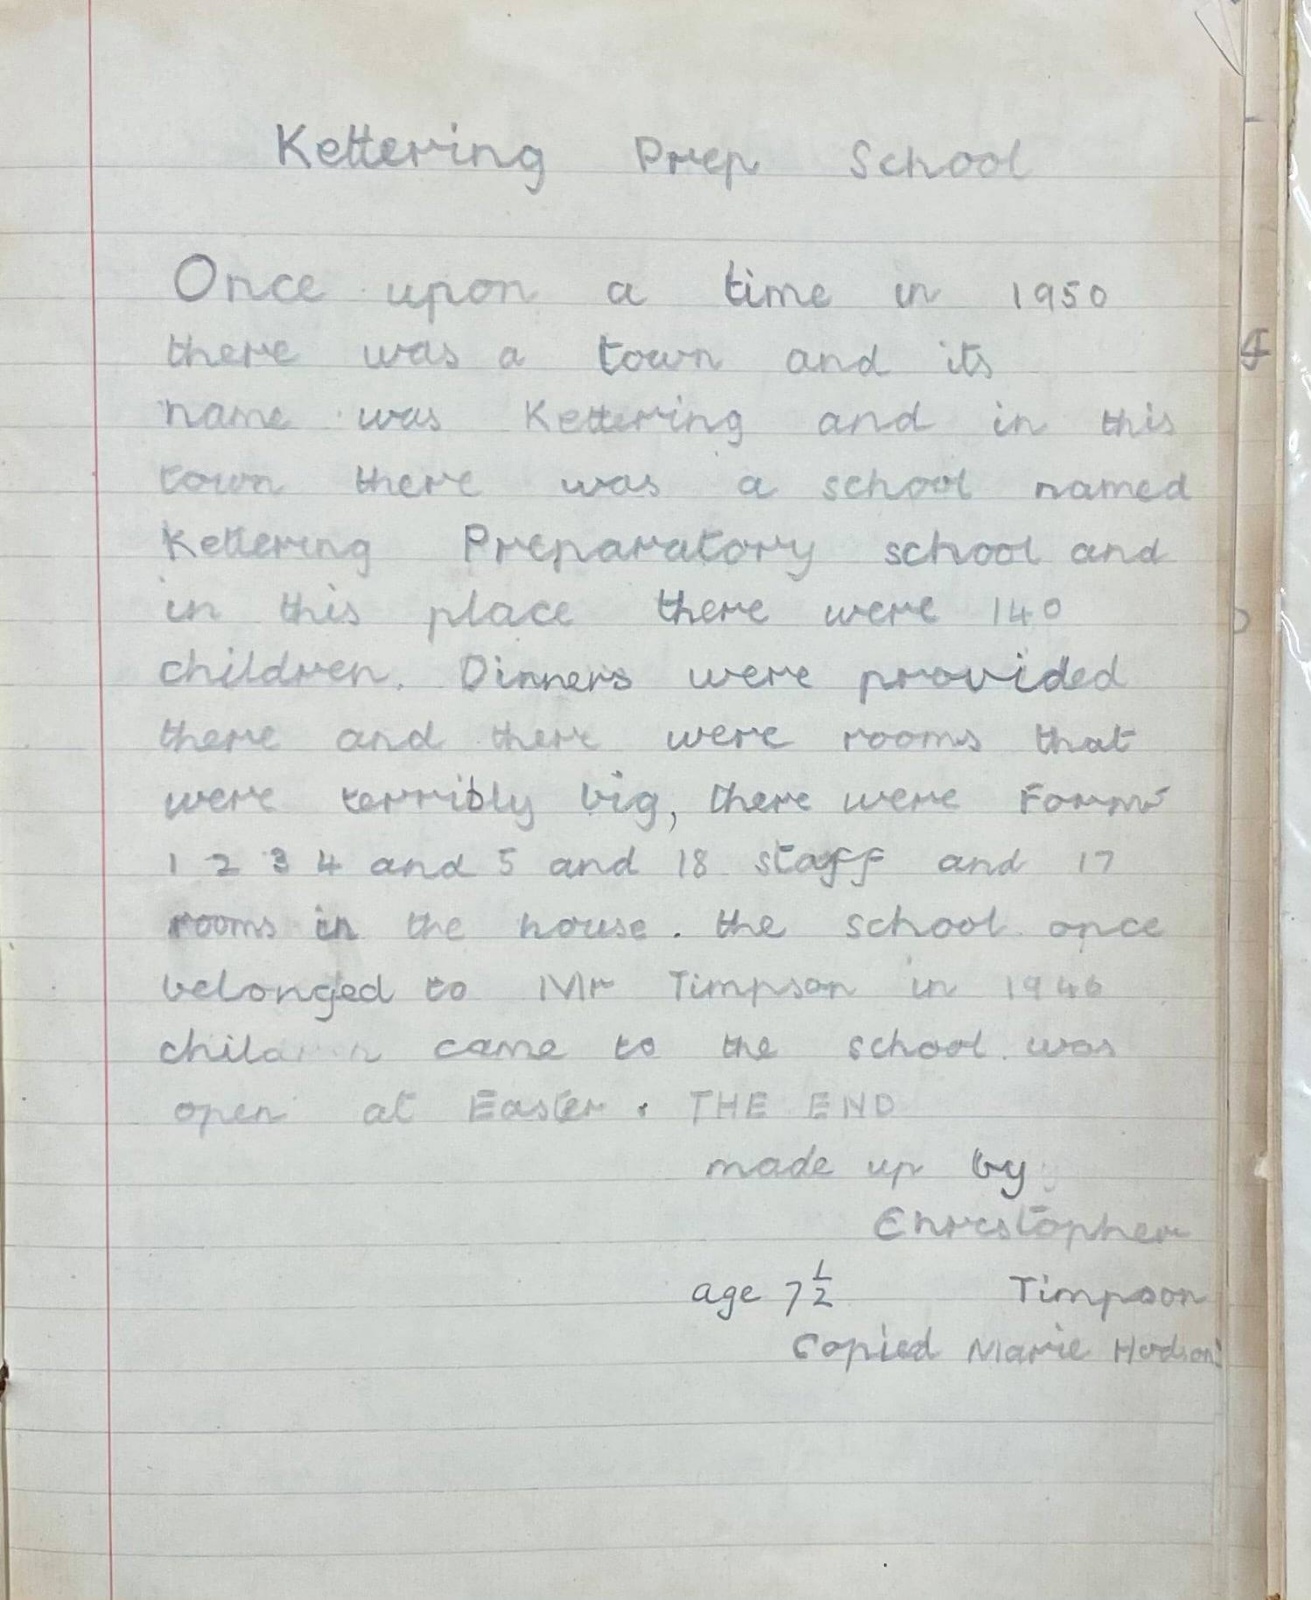 Kettering Prep School
Once upon a time in 1950
there was a town and its
name was Kettering and in this
town there was a school named
Kettering Preparatory school and
in this place there were 140
children. Dinners were provided
there and there were rooms that
were terribly big, there were Forms
1 2 3 4 and 5 and 18 staff and 17
rooms in the house. the school once
belonged to Mr Timpson in 1946
children came to the school was
open at Easter. THE END
made up by
Christopher
age 7½ Timpson
Copied Marie Hudson